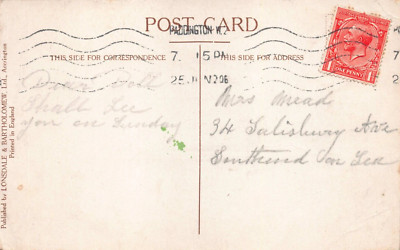 POST CARD
PADDINGTON W.2
7. 15 PM
THIS SIDE FOR CORRESPONDENCE
THIS SIDE FOR ADDRESS
ONE PENNY
Dear Doll
Shall See
you on Sunday
Mrs Mead
34 Salisbury Ave
Southwood on Sea
Published by LONSDALE & BARTHOLOMEW, Ltd., Accrington
Printed in England